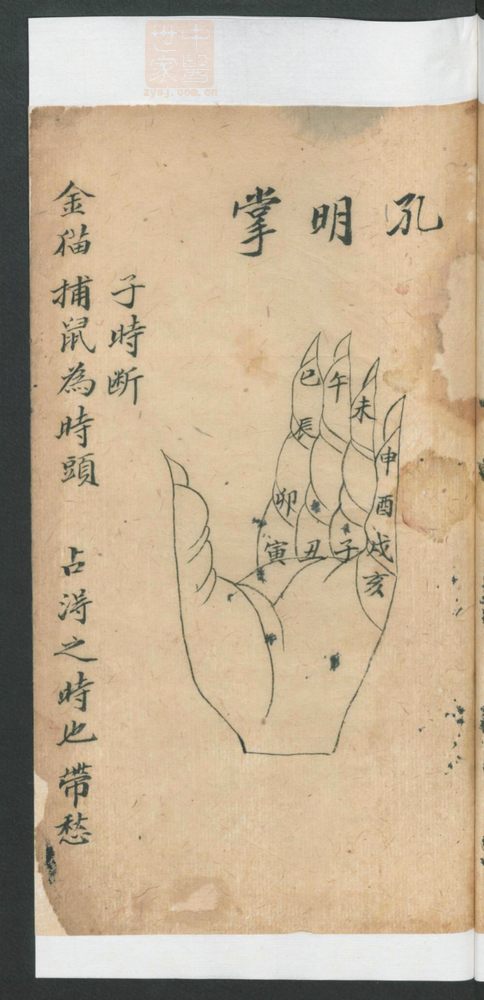 孔明掌
巳
午
未
辰
申
卯
酉
寅
丑
子
戌
亥
子時断
金猫捕鼠為時頭 占淂之時也帶愁
中醫世家
zysj.com.cn